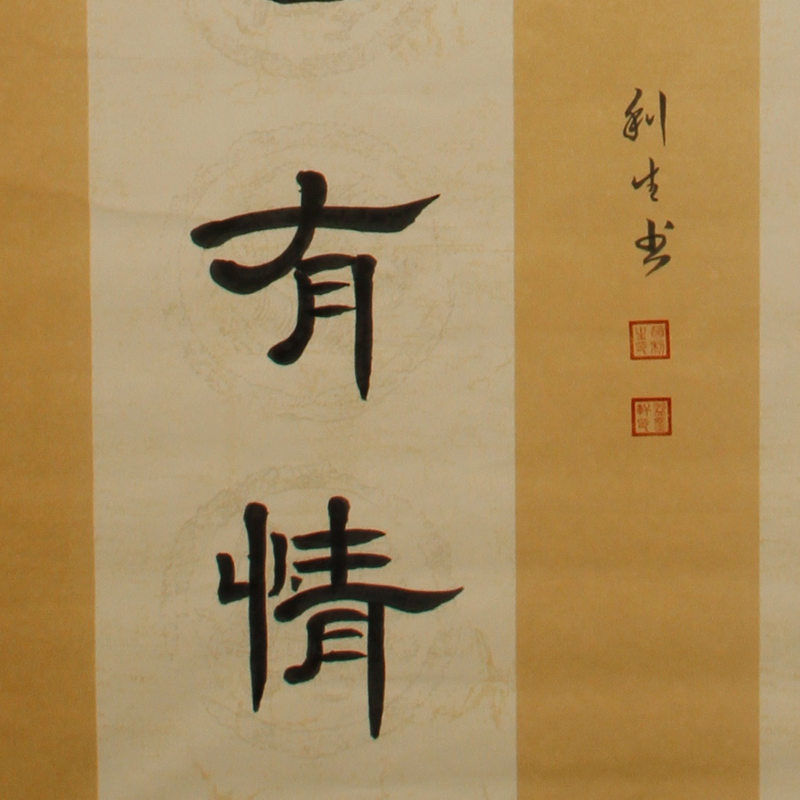 有情
利生书